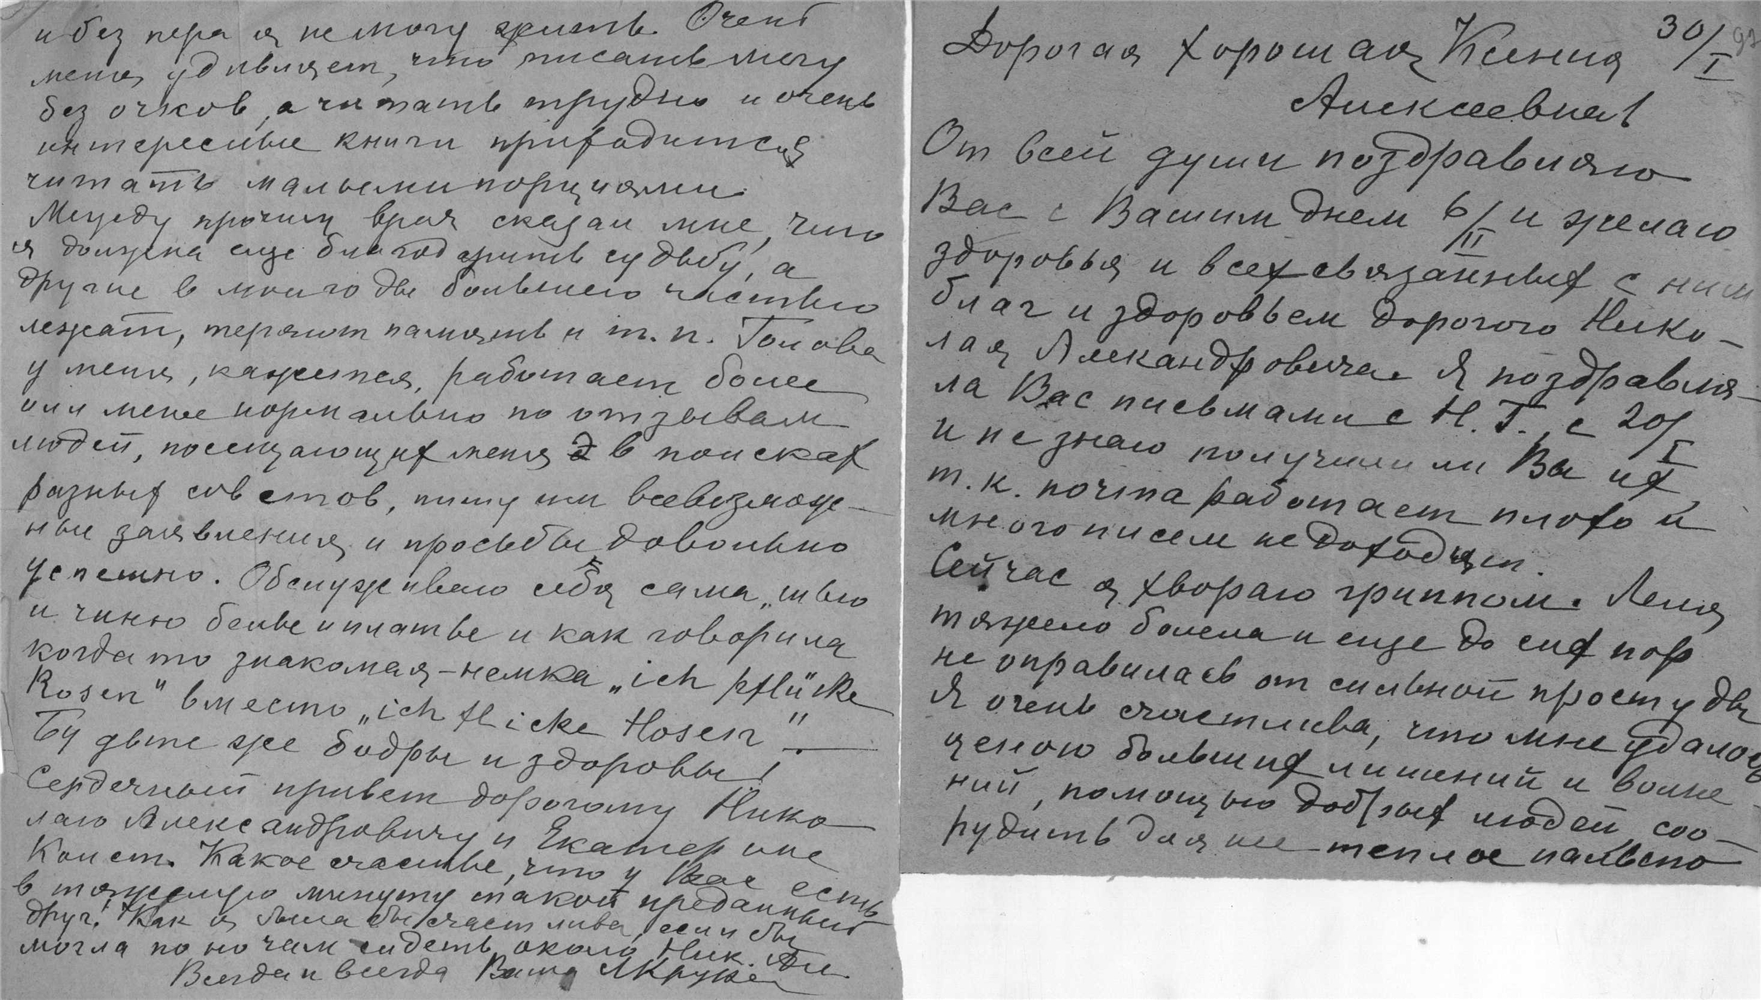 и без пера я не могу жить. Очень
меня удивляет, что писать могу
без очков, а читать трудно и очень
интересные книги приходится
читать малыми порциями.
Между прочим врач сказал мне, что
я должна еще благодарить судьбу, а
другие в мои годы большею частью
лежат, теряют память и т.п. Голова
у меня, кажется, работает более
или мене нормально по отзывам
людей, посещающих меня в поисках
разных советов, пишу им всевозмож-
ные заявления и просьбы довольно
успешно. Обслуживаю себя сама, шью
и чиню белье и платье и как говорила
когда то знакомая-немка „ich pflücke
Rosen" вместо „ich flicke Hosen"!
Будьте же бодры и здоровы!
Сердечный привет дорогому Нико
лаю Александровичу и Екатерине
Конст. Какое счастье, что у Вас есть
в тяжелую минуту такой преданный
друг! Как я была бы счастлива, если бы
могла по ночам сидеть около Ник. Ал.
Всегда и всегда Ваша
30/I
Дорогая хорошая Ксения
Алексеевна!
От всей души поздравляю
Вас с Вашим днем 6/II и желаю
здоровья и всех связанных с ним
благ и здоровьем дорогого Нико-
лая Александровича. Я поздравля-
ла Вас письмами с Н.Г., с 20/I
и не знаю получили ли Вы их,
т.к. почта работает плохо и
много писем не доходят.
Сейчас я хвораю гриппом. Леля
тяжело болела и еще до сих пор
не оправилась от сильной простуды
Я очень счастлива, что мне удалось
ценою больших лишений и волне
ний, помощью добрых людей соо-
рудить для нее теплое пальто